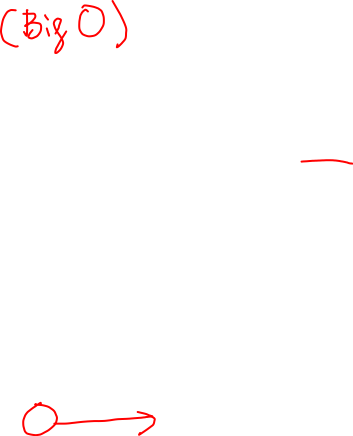 (Big O)